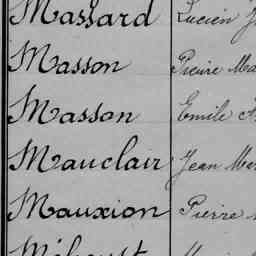 Massard Lucien
Masson Pierre
Masson Emile
Mauclair Jean
Mauxion Pierre